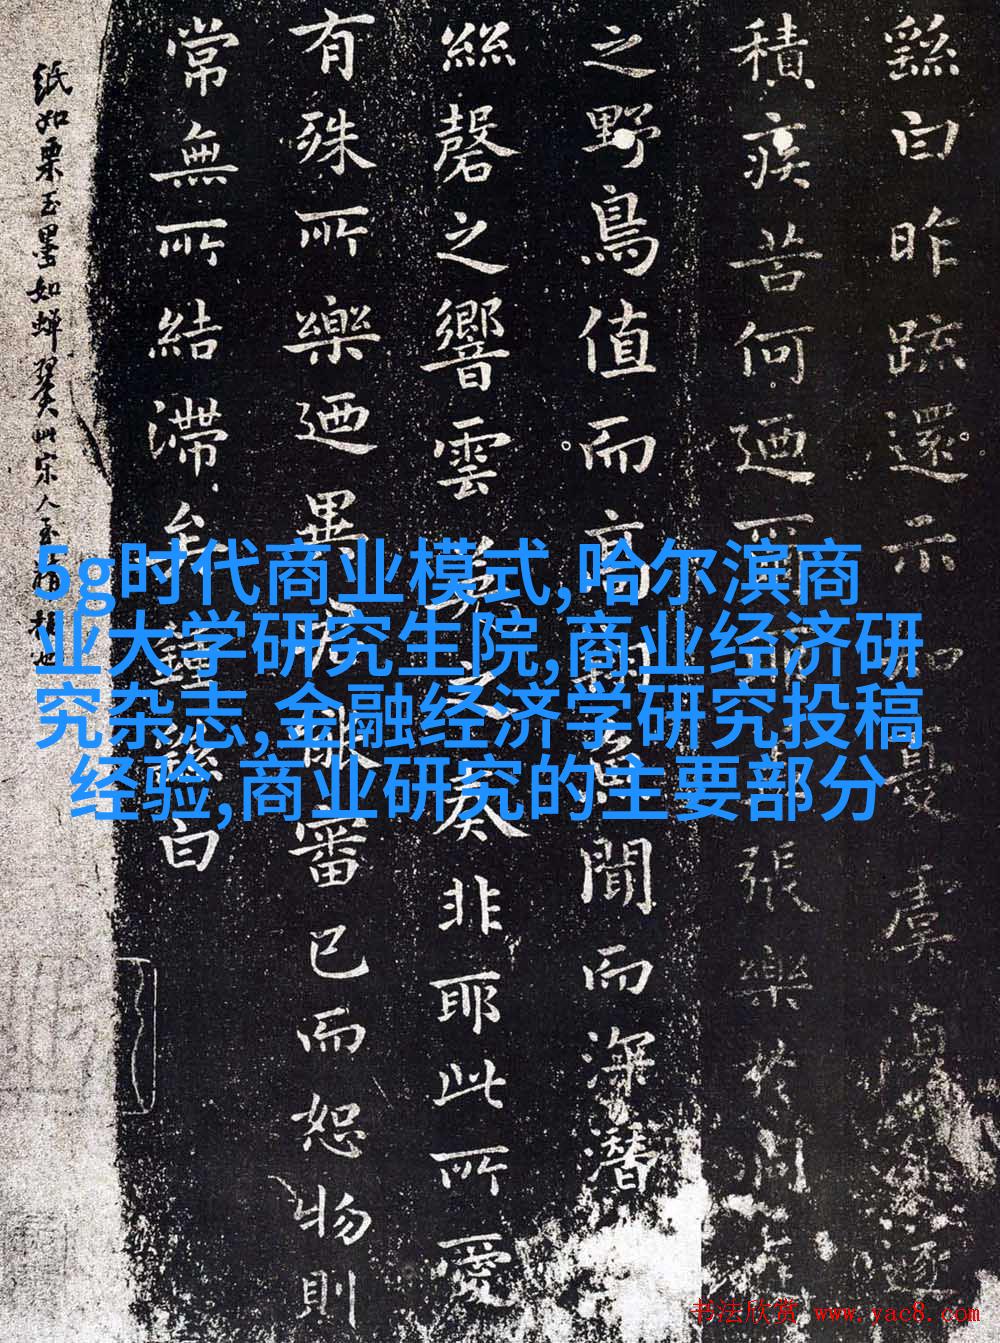 繇白昨疏還示
積疾苦何迺
張樂於洞
之野鳥值而
聞而深潛
絲磬之響雲
之奏非耶此所愛
有殊所樂迺異
審己而恕物則
常無所結滯
白
紙如栗玉墨如蟬翼
宋人
5g时代商业模式,哈尔滨商
业大学研究生院,商业经济研
究杂志,金融经济学研究投稿
经验,商业研究的主要部分
书法欣赏 www.yac8.com